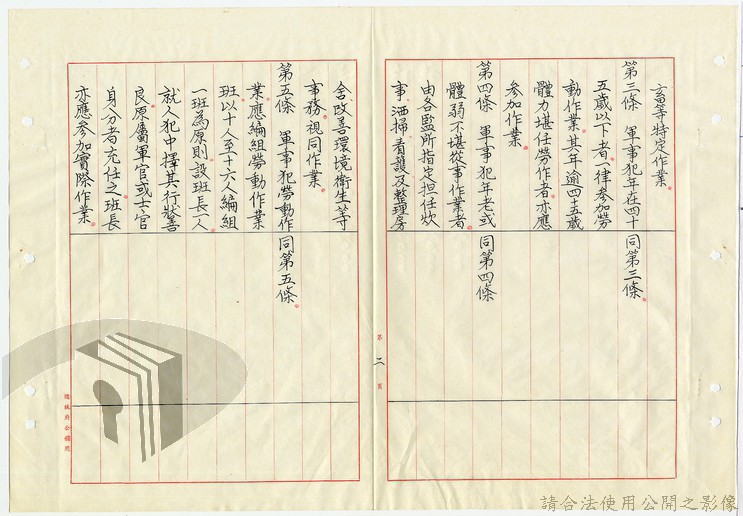 畜等特定作業。
第三條　軍事犯年在四十
五歲以下者一律參加勞
動作業，其年逾四十五歲
體力堪任勞作者，亦應
參加作業。
同第三條。
第四條　軍事犯年老或
體弱不堪從事作業者，
由各監所指定担任炊
事、洒掃、看護及整理房
同第四條
舍，改善環境衛生等
事務，視同作業。
第五條　軍事犯勞動作
業應編組勞動作業
班，以十人至十六人編組
一班為原則，設班長一人，
就人犯中擇其行狀善
良，原屬軍官或士官
身分者充任之，班長
亦應參加實際作業。
同第五條。
第二頁
總統府公機用
請合法使用公開之影像